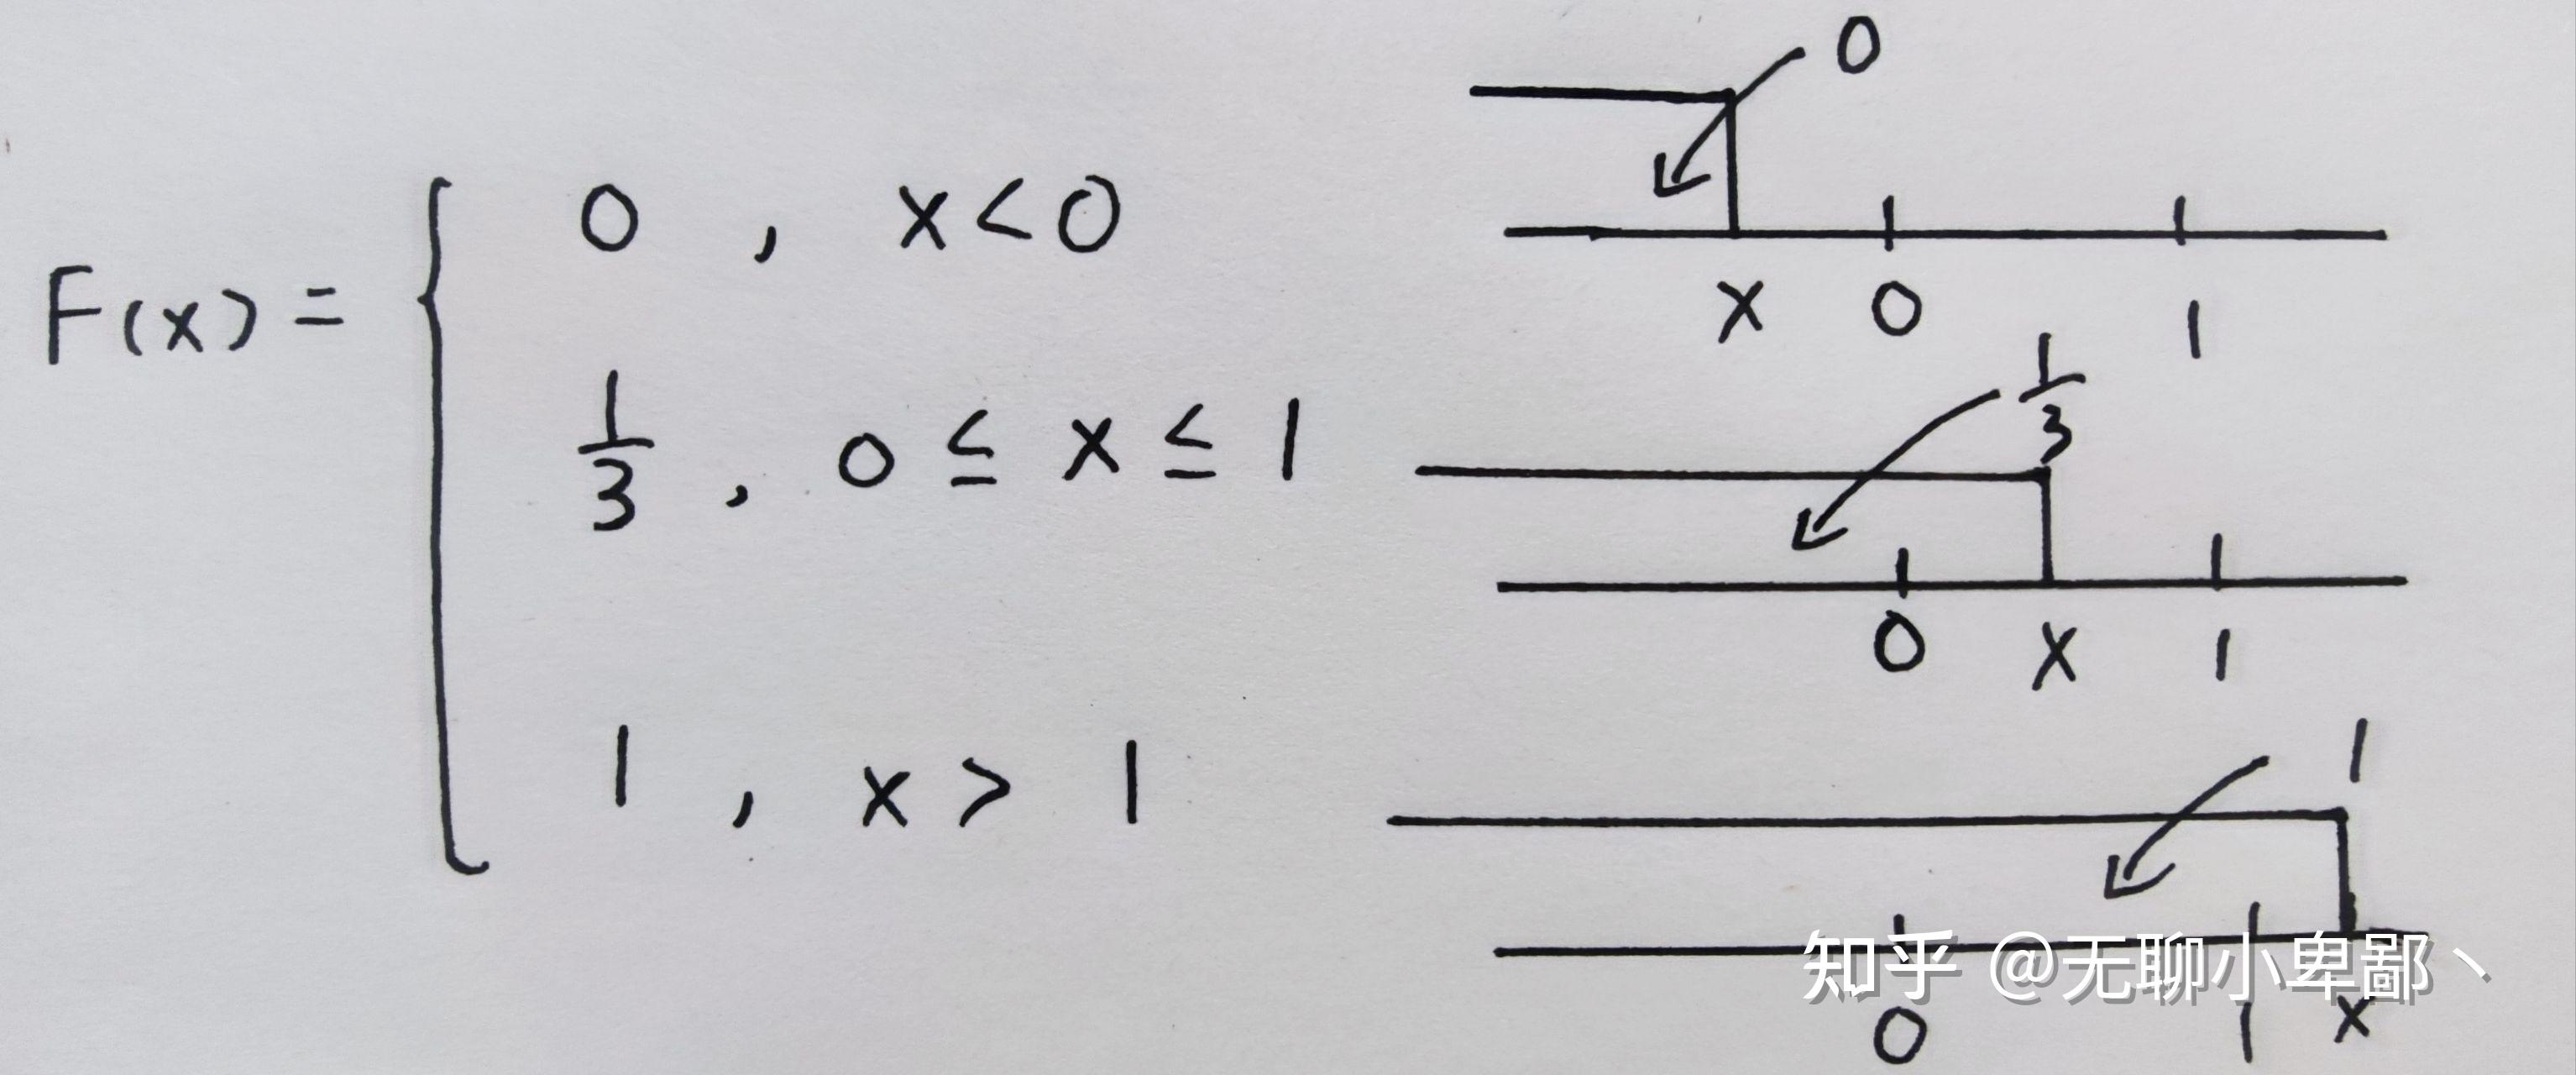 F(x) = { 0 , x<0
1/3 , 0 ≤ x ≤ 1
1 , x > 1
0
x 0 1
1/3
0 x 1
1
0 1 x
知乎 @无聊小卑鄙丶